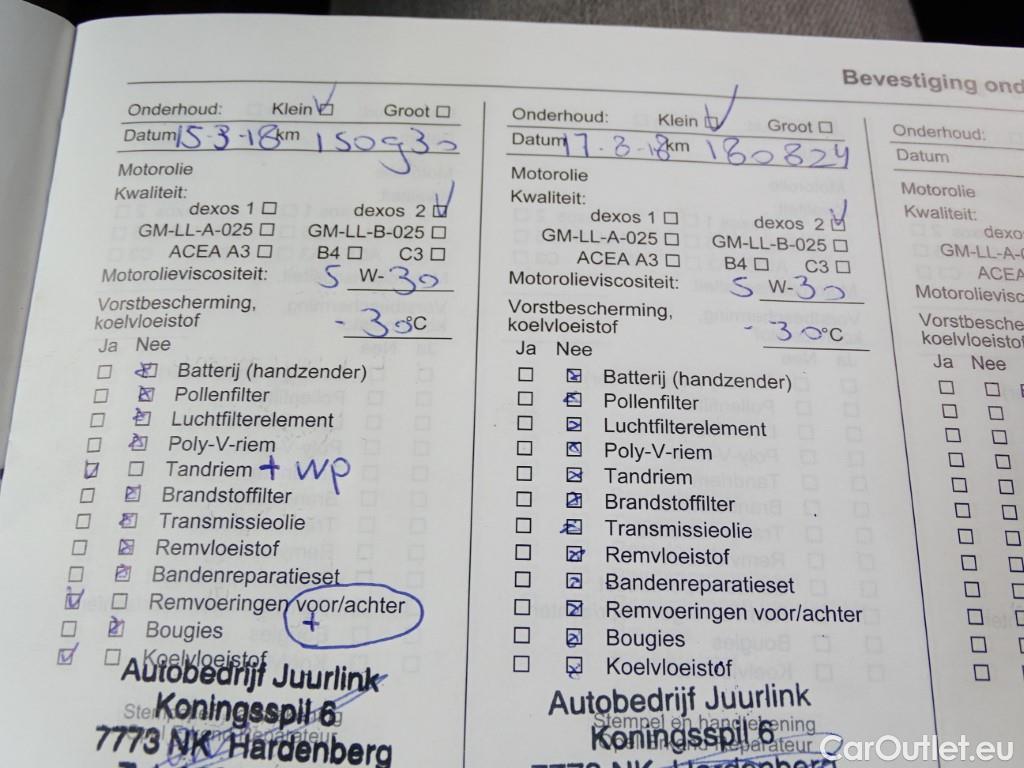 Bevestiging ond
Onderhoud: Klein Groot
Datum 15-3-18 km 150930
Motorolie
Kwaliteit:
dexos 1 dexos 2
GM-LL-A-025 GM-LL-B-025
ACEA A3 B4 C3
Motorolieviscositeit: 5 W-30
Vorstbescherming,
koelvloeistof -30°C
Ja Nee
Batterij (handzender)
Pollenfilter
Luchtfilterelement
Poly-V-riem
Tandriem + WP
Brandstoffilter
Transmissieolie
Remvloeistof
Bandenreparatieset
Remvoeringen voor/achter
+
Bougies
Koelvloeistof
Autobedrijf Juurlink
Koningsspil 6
7773 NK Hardenberg
Onderhoud: Klein Groot
Datum 17-8-18 km 180824
Motorolie
Kwaliteit:
dexos 1 dexos 2
GM-LL-A-025 GM-LL-B-025
ACEA A3 B4 C3
Motorolieviscositeit: 5 W-30
Vorstbescherming,
koelvloeistof -30°C
Ja Nee
Batterij (handzender)
Pollenfilter
Luchtfilterelement
Poly-V-riem
Tandriem
Brandstoffilter
Transmissieolie
Remvloeistof
Bandenreparatieset
Remvoeringen voor/achter
Bougies
Koelvloeistof
Autobedrijf Juurlink
Stempel en handtekening
Koningsspil 6
Opel Erkend Reparateur
7773 NK Hardenberg
Onderhoud:
Datum
Motorolie
Kwaliteit:
dexos
GM-LL-A-0
ACEA
Motorolievisc
Vorstbesche
koelvloeistof
Ja Nee
CarOutlet.eu